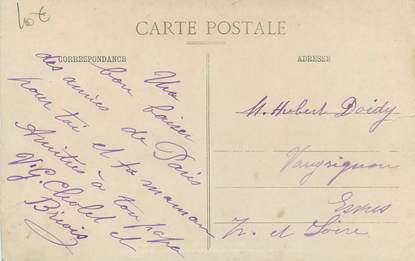 10€
CARTE POSTALE
CORRESPONDANCE
ADRESSE
Un baiser
bon de Paris
des amies
pour toi et ta maman
Amitiés à ton papa
Vig. Cholet et
M. Hubert Doidy
Vaugrignon
Esvres
I. et Loire